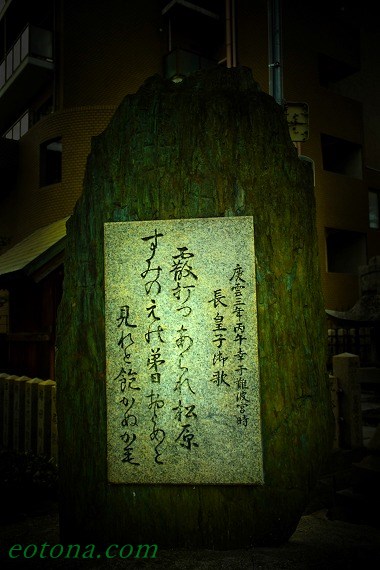 慶雲三年丙午幸于難波宮時
長皇子御歌
霰打つあられ松原
すみのえの弟日おとめと
見れと飽かぬかも
eotona.com